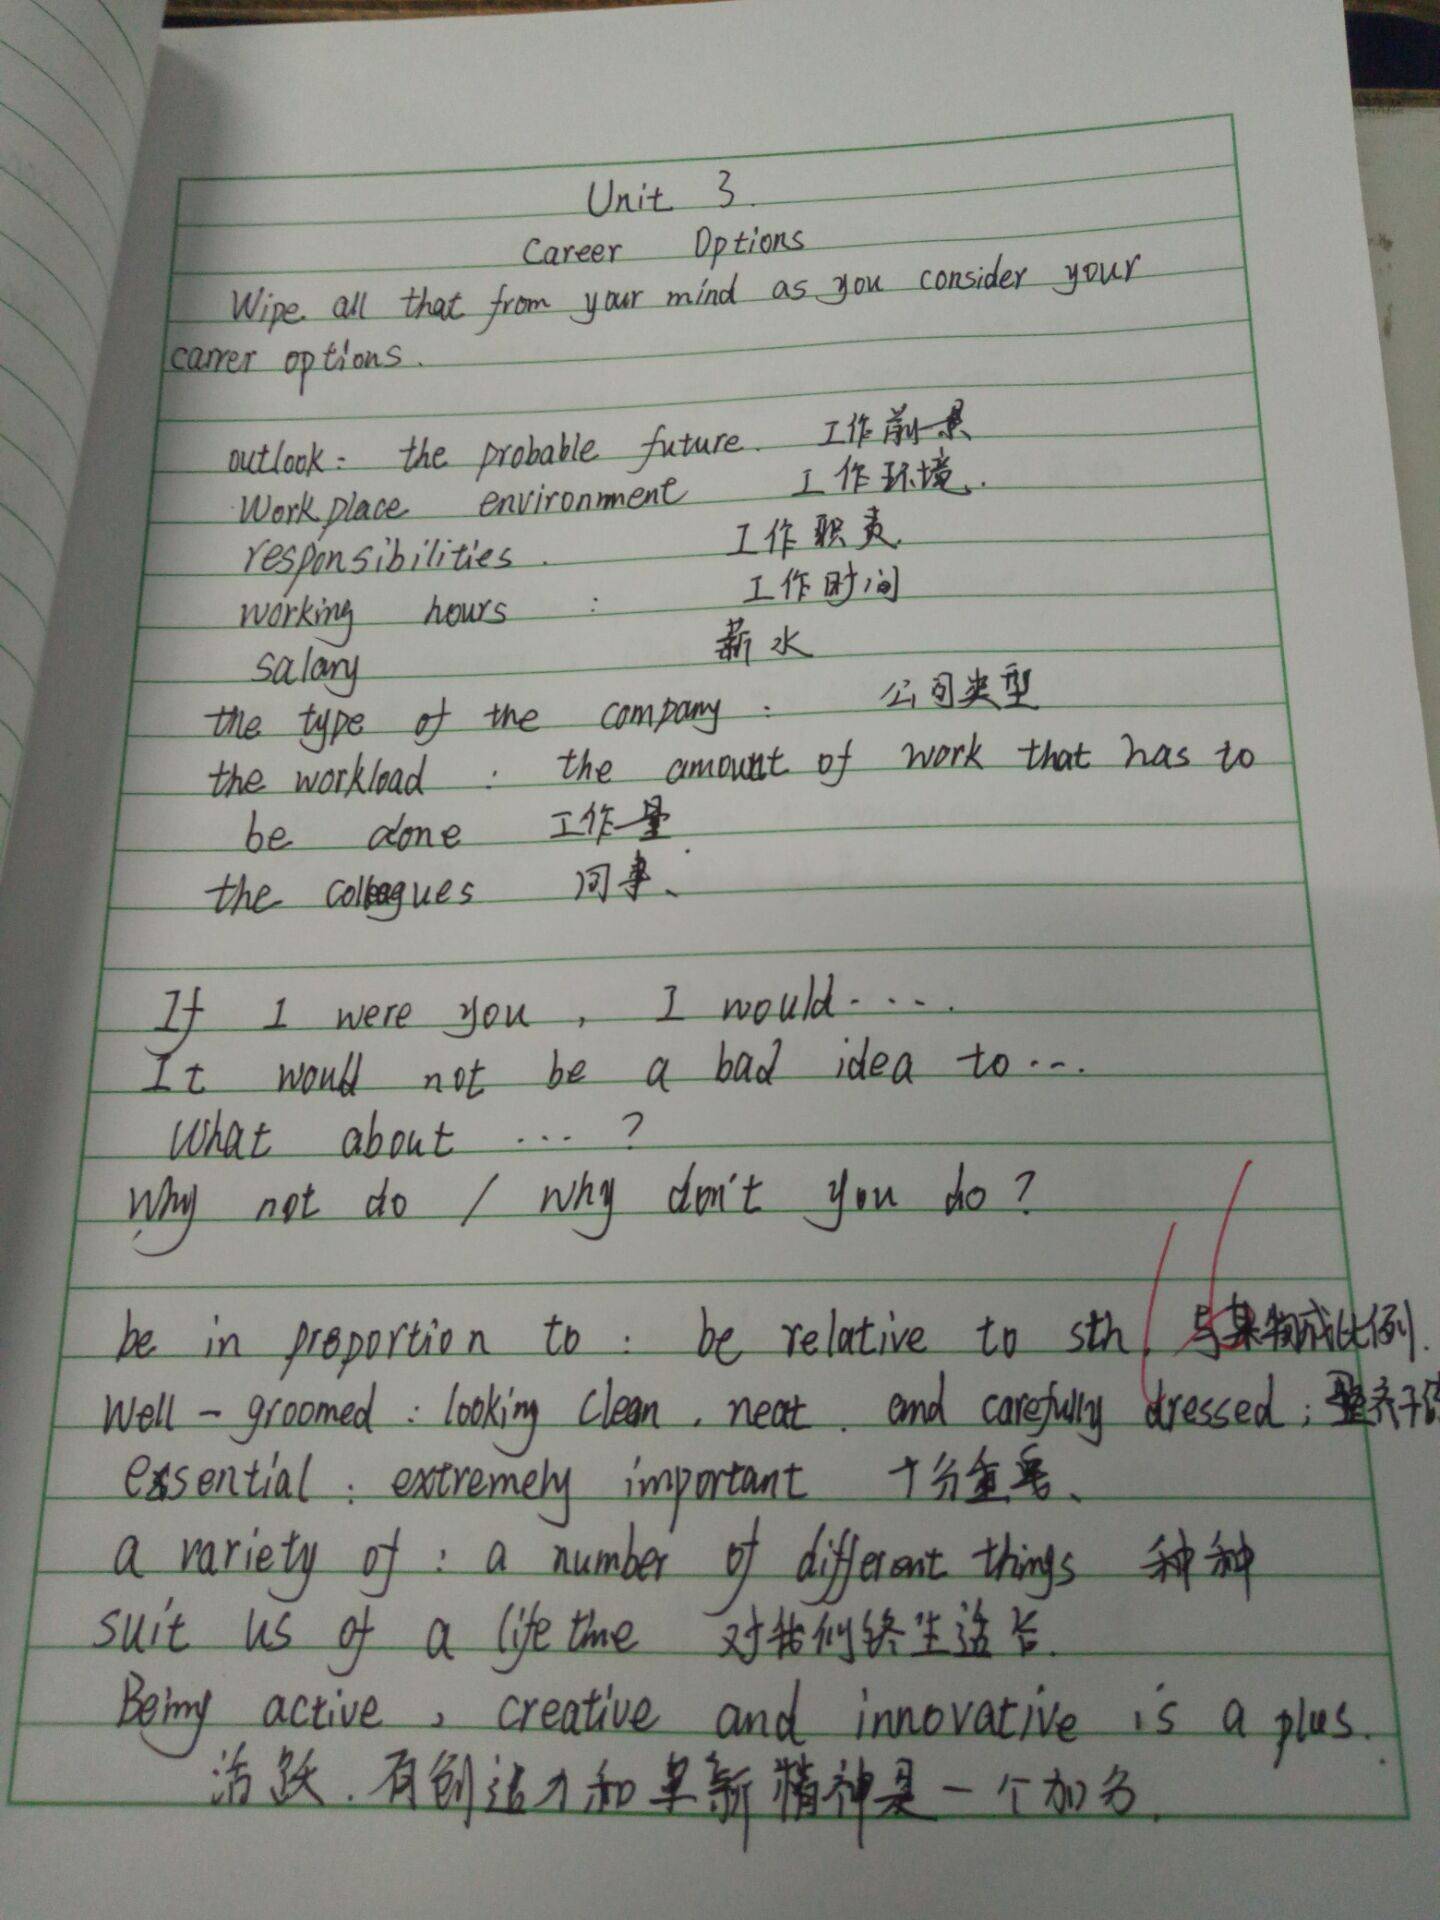 Unit 3.
Career Options
Wipe all that from your mind as you consider your
carrer options.
outlook: the probable future. 工作前景
Workplace environment 工作环境.
responsibilities. 工作职责.
working hours : 工作时间
salary 薪水
the type of the company : 公司类型
the workload : the amount of work that has to
be done 工作量.
the colleagues 同事、
If I were you , I would.....
It would not be a bad idea to...
What about ... ?
Why not do / why don't you do ?
be in proportion to : be relative to sth. 与某物成比例.
Well-groomed : looking clean, neat, and carefully dressed; 整齐干
essential : extremely important 十分重要、
a variety of : a number of different things 种种
suit us of a life time 对我们终生适合.
Being active , creative and innovative is a plus.
活跃.有创造力和革新精神是一个加分.